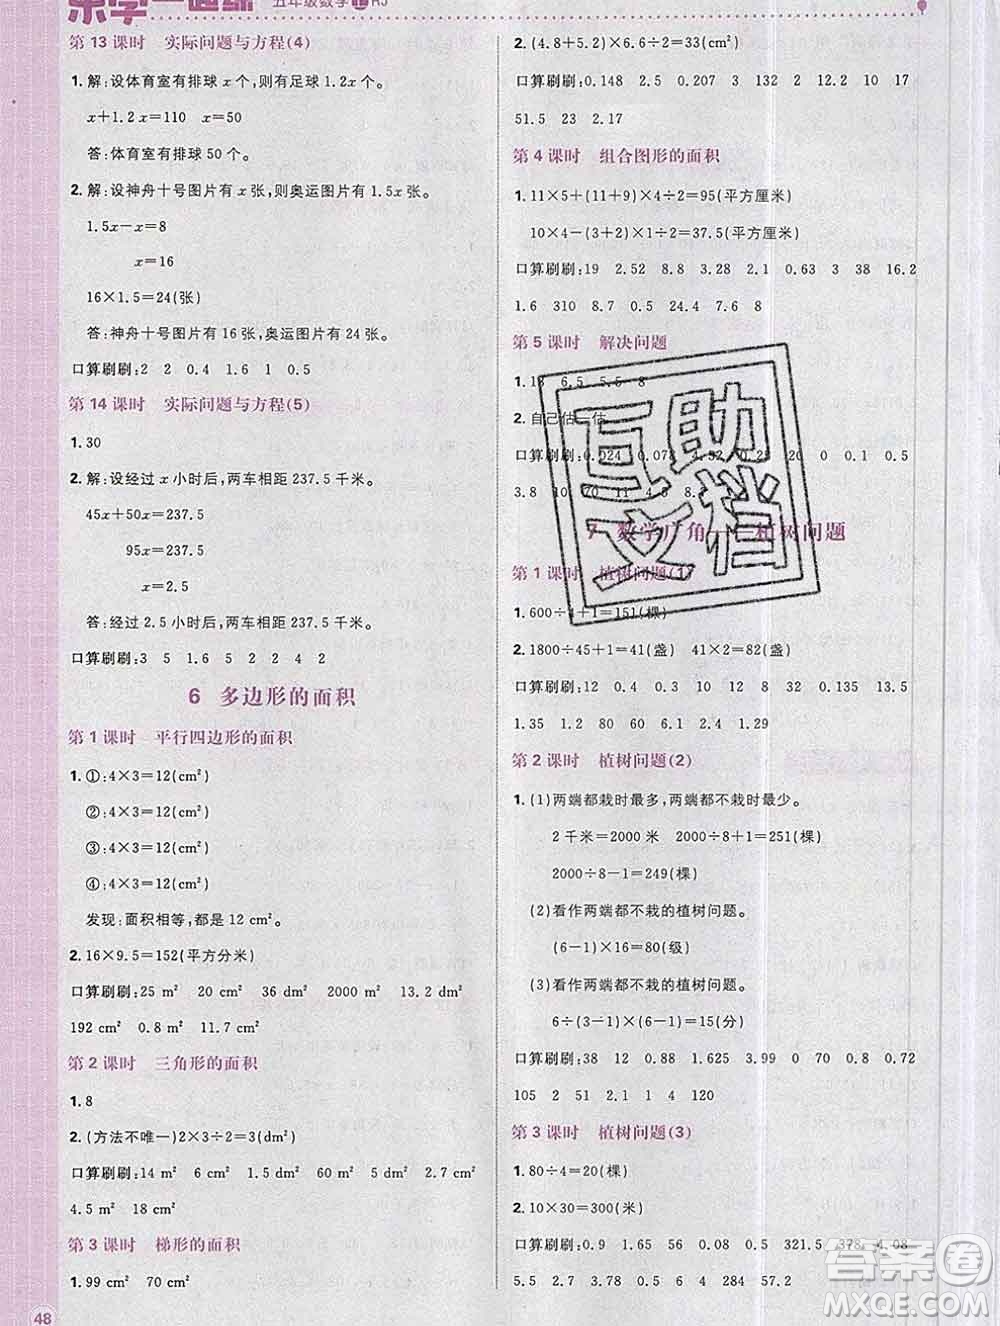 乐学一起练 五年级数学 上 RJ
第 13 课时 实际问题与方程(4)
1. 解:设体育室有排球 x 个,则有足球 1.2x 个。
x+1.2x=110 x=50
答:体育室有排球 50 个。
2. 解:设神舟十号图片有 x 张,则奥运图片有 1.5x 张。
1.5x-x=8
x=16
16×1.5=24(张)
答:神舟十号图片有 16 张,奥运图片有 24 张。
口算刷刷:2 2 0.4 1.6 1 0.5
第 14 课时 实际问题与方程(5)
1. 30
2. 解:设经过 x 小时后,两车相距 237.5 千米。
45x+50x=237.5
95x=237.5
x=2.5
答:经过 2.5 小时后,两车相距 237.5 千米。
口算刷刷:3 5 1.6 5 2 2 4 2
6 多边形的面积
第 1 课时 平行四边形的面积
1. ①:4×3=12(cm²)
②:4×3=12(cm²)
③:4×3=12(cm²)
④:4×3=12(cm²)
发现:面积相等,都是 12 cm²。
2. 16×9.5=152(平方分米)
口算刷刷:25 m² 20 cm² 36 dm² 2000 m² 13.2 dm²
192 cm² 0.8 m² 11.7 cm²
第 2 课时 三角形的面积
1. 8
2. (方法不唯一)2×3÷2=3(cm²)
口算刷刷:14 m² 6 cm² 9 dm² 5 dm² 2.7 cm²
4.5 m² 24 cm² 9 m²
第 3 课时 梯形的面积
1. 99 cm² 70 cm²
48
2. (4.8+5.2)×6.6÷2=33(cm²)
口算刷刷:0.148 2.5 0.207 3 132 2 10.2
51.5 23 2.17
第 4 课时 组合图形的面积
1. 11×5+(11+9)×4÷2=95(平方厘米)
10×4-(3+2)×1÷2=37.5(平方厘米)
口算刷刷:19 2.52 8.8 3.28 2.1 0.63 3 38 16.2
1.6 310 8.7 0.5 24.4 7.6 8
第 5 课时 解决问题
1. 18 6.5 5.5 8
2. 自己估一估
口算刷刷:0.024 0.078 4.52 20 0 0.81
3.8 10 70 11 4.3 8.8
7 数学广角——植树问题
第 1 课时 植树问题(1)
1. 600÷4+1=151(棵)
2. 1800÷45+1=41(盏) 41×2=82(盏)
口算刷刷:12 1 11 0.4 0.6 0.132 0.06 13.5
1.35 1.2 80 60 6.1 2.4 1.29
第 2 课时 植树问题(2)
1. (1)两端都栽时最多,两端都不栽时最少。
2 千米=2000 米 2000÷8+1=251(棵)
2000÷8-1=249(棵)
(2)看作两端都不栽的植树问题。
(6-1)×16=80(级)
(3)看作两端都不栽的植树问题。
6÷(3-1)×(6-1)=15(分)
口算刷刷:38 12 0.88 1.625 3.99 0 70 0.8 0.72
105 2 51 2.1 4 120
第 3 课时 植树问题(3)
1. 80÷4=20(棵)
2. 10×30=300(米)
口算刷刷:0.9 1.65 56 0.12 130 0 321.5 378 4.08
5.5 2.7 0.95 4 6 284 57.2
互助文档
答案圈
MXQE.COM